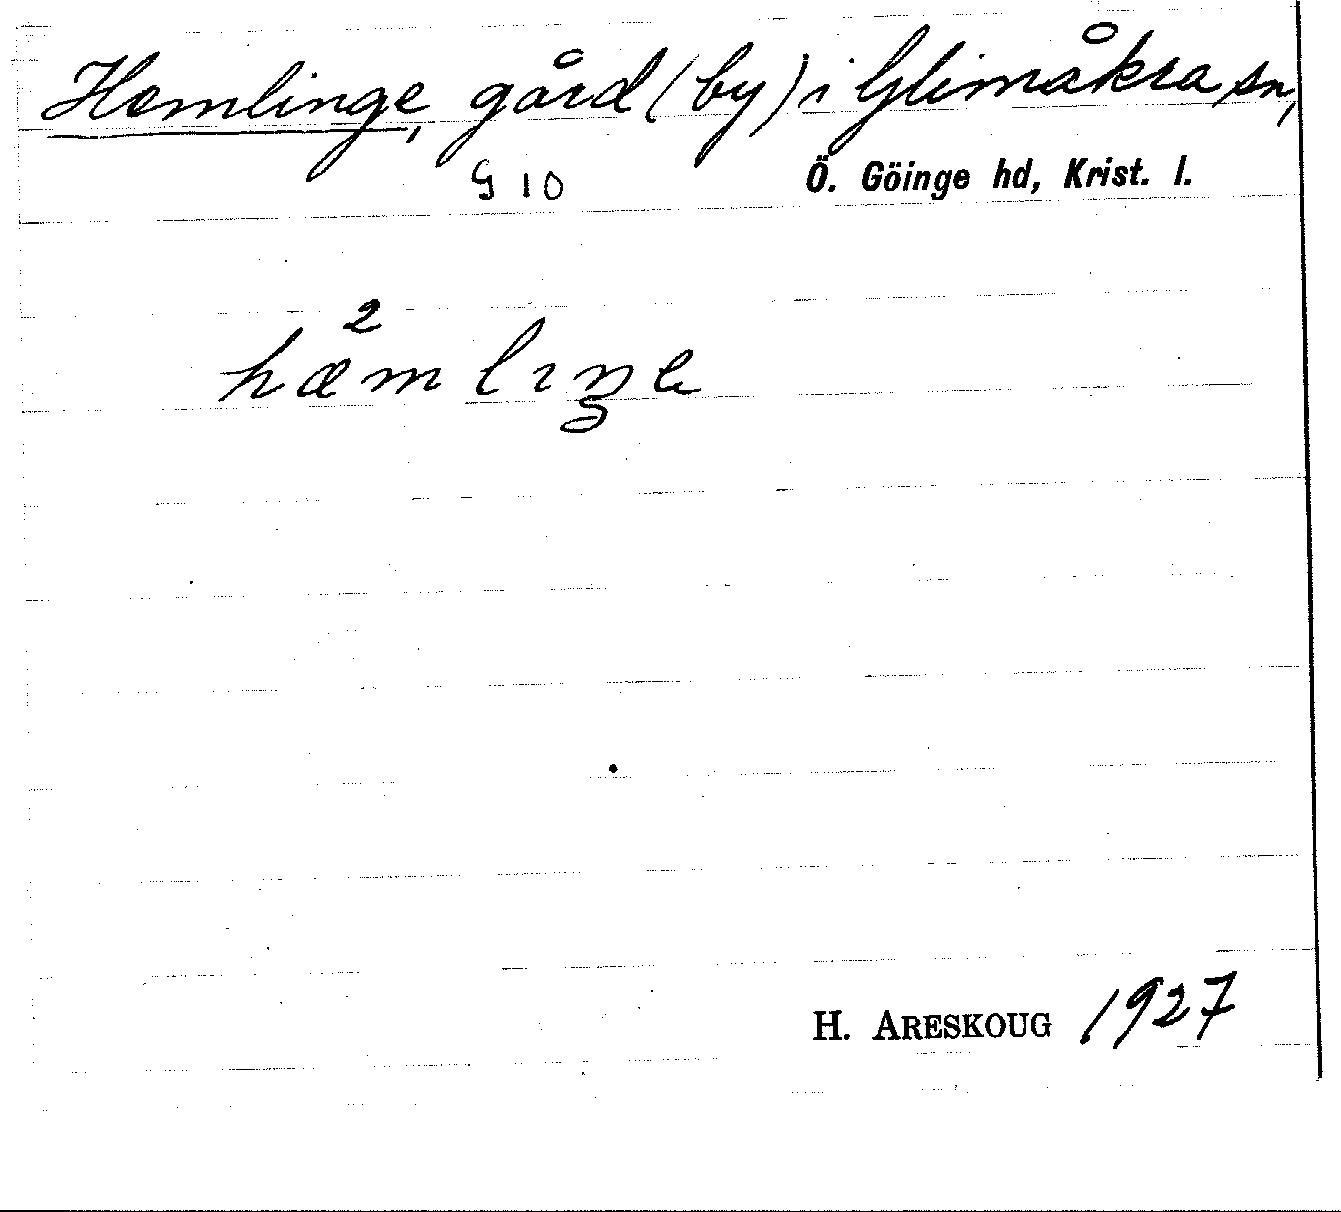 Hemlinge, gård (by) i Glimåkra sn,
G 10 Ö. Göinge hd, Krist. l.
2
hæmlıŋe
H. ARESKOUG 1927